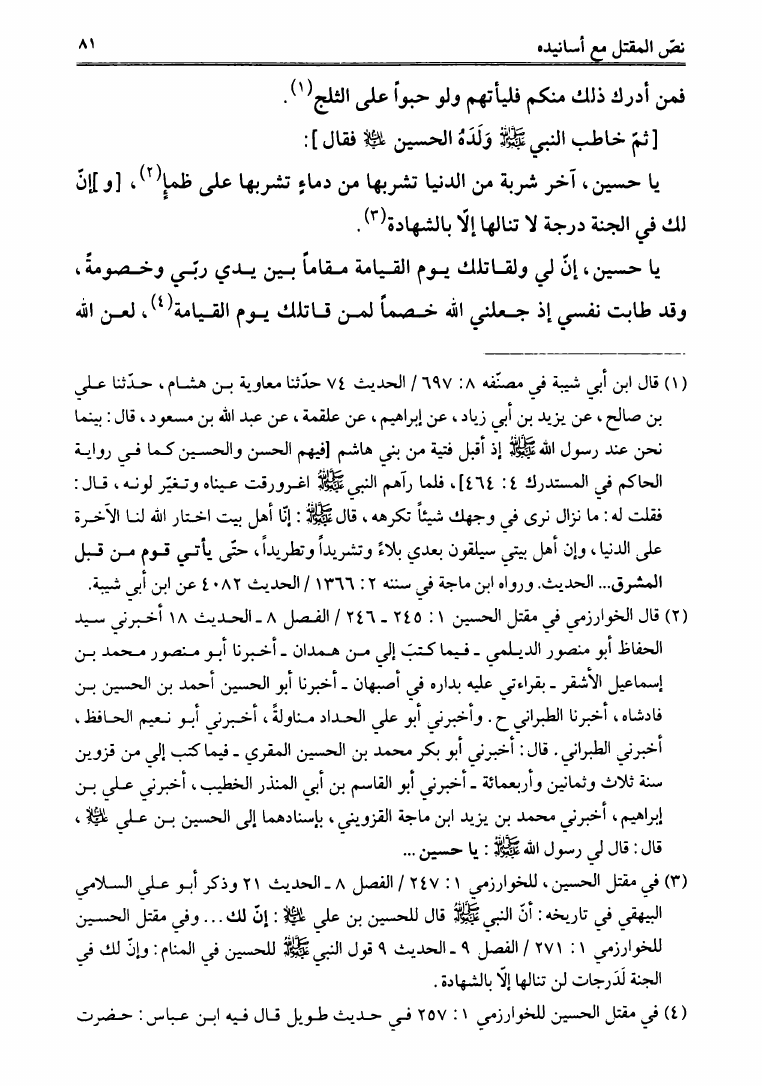 نصّ المقتل مع أسانيده ٨١
فمن أدرك ذلك منكم فليأتهم ولو حبواً على الثلج(١).
[ثمّ خاطب النبي ﷺ وَلَدَهُ الحسين ﵇ فقال]:
يا حسين، آخر شربة من الدنيا تشربها من دماءٍ تشربها على ظمإٍ(٢)، [و]إنّ
لك في الجنة درجة لا تنالها إلّا بالشهادة(٣).
يا حسين، إنّ لي ولقاتلك يوم القيامة مقاماً بين يدي ربّي وخصومةً،
وقد طابت نفسي إذ جعلني الله خصماً لمن قاتلك يوم القيامة(٤)، لعن الله
(١) قال ابن أبي شيبة في مصنّفه ٨: ٦٩٧ / الحديث ٧٤ حدّثنا معاوية بن هشام، حدّثنا علي
بن صالح، عن يزيد بن أبي زياد، عن إبراهيم، عن علقمة، عن عبد الله بن مسعود، قال: بينما
نحن عند رسول الله ﷺ إذ أقبل فتية من بني هاشم [فيهم الحسن والحسين كما في رواية
الحاكم في المستدرك ٤: ٤٦٤]، فلما رآهم النبي ﷺ اغرورقت عيناه وتغيّر لونه، قال:
فقلت له: ما نزال نرى في وجهك شيئاً تكرهه، قال ﷺ: إنّا أهل بيت اختار الله لنا الآخرة
على الدنيا، وإن أهل بيتي سيلقون بعدي بلاءً وتشريداً وتطريداً، حتّى يأتي قوم من قبل
المشرق... الحديث. ورواه ابن ماجة في سننه ٢: ١٣٦٦ / الحديث ٤٠٨٢ عن ابن أبي شيبة.
(٢) قال الخوارزمي في مقتل الحسين ١: ٢٤٥ ـ ٢٤٦ / الفصل ٨ ـ الحديث ١٨ أخبرني سيد
الحفاظ أبو منصور الديلمي ـ فيما كتبَ إلي من همدان ـ أخبرنا أبو منصور محمد بن
إسماعيل الأشقر ـ بقراءتي عليه بداره في أصبهان ـ أخبرنا أبو الحسين أحمد بن الحسين بن
فادشاه، أخبرنا الطبراني ح. وأخبرني أبو علي الحداد مناولةً، أخبرني أبو نعيم الحافظ،
أخبرني الطبراني. قال: أخبرني أبو بكر محمد بن الحسين المقري ـ فيما كتب إلي من قزوين
سنة ثلاث وثمانين وأربعمائة ـ أخبرني أبو القاسم بن أبي المنذر الخطيب، أخبرني علي بن
إبراهيم، أخبرني محمد بن يزيد ابن ماجة القزويني، بإسنادهما إلى الحسين بن علي ﵇،
قال: قال لي رسول الله ﷺ: يا حسين ...
(٣) في مقتل الحسين، للخوارزمي ١: ٢٤٧ / الفصل ٨ ـ الحديث ٢١ وذكر أبو علي السلامي
البيهقي في تاريخه: أنّ النبي ﷺ قال للحسين بن علي ﵇: إنّ لك... وفي مقتل الحسين
للخوارزمي ١: ٢٧١ / الفصل ٩ ـ الحديث ٩ قول النبي ﷺ للحسين في المنام: وإنّ لك في
الجنة لَدَرجات لن تنالها إلّا بالشهادة.
(٤) في مقتل الحسين للخوارزمي ١: ٢٥٧ في حديث طويل قال فيه ابن عباس: حضرت